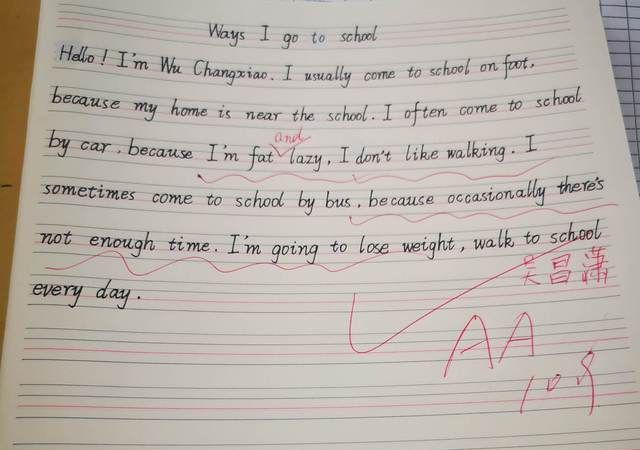 Ways I go to school
Hello! I'm Wu Changxiao. I usually come to school on foot,
because my home is near the school. I often come to school
and
by car, because I'm fat lazy, I don't like walking. I
sometimes come to school by bus, because occasionally there's
not enough time. I'm going to lose weight, walk to school
吴昌潇
every day.
AA